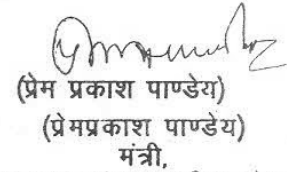 (प्रेम प्रकाश पाण्डेय)
(प्रेमप्रकाश पाण्डेय)
मंत्री,